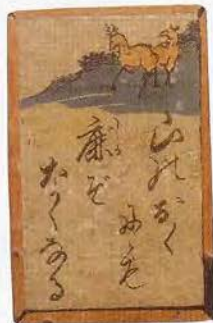 山のおく
にも
鹿ぞ
なくなる